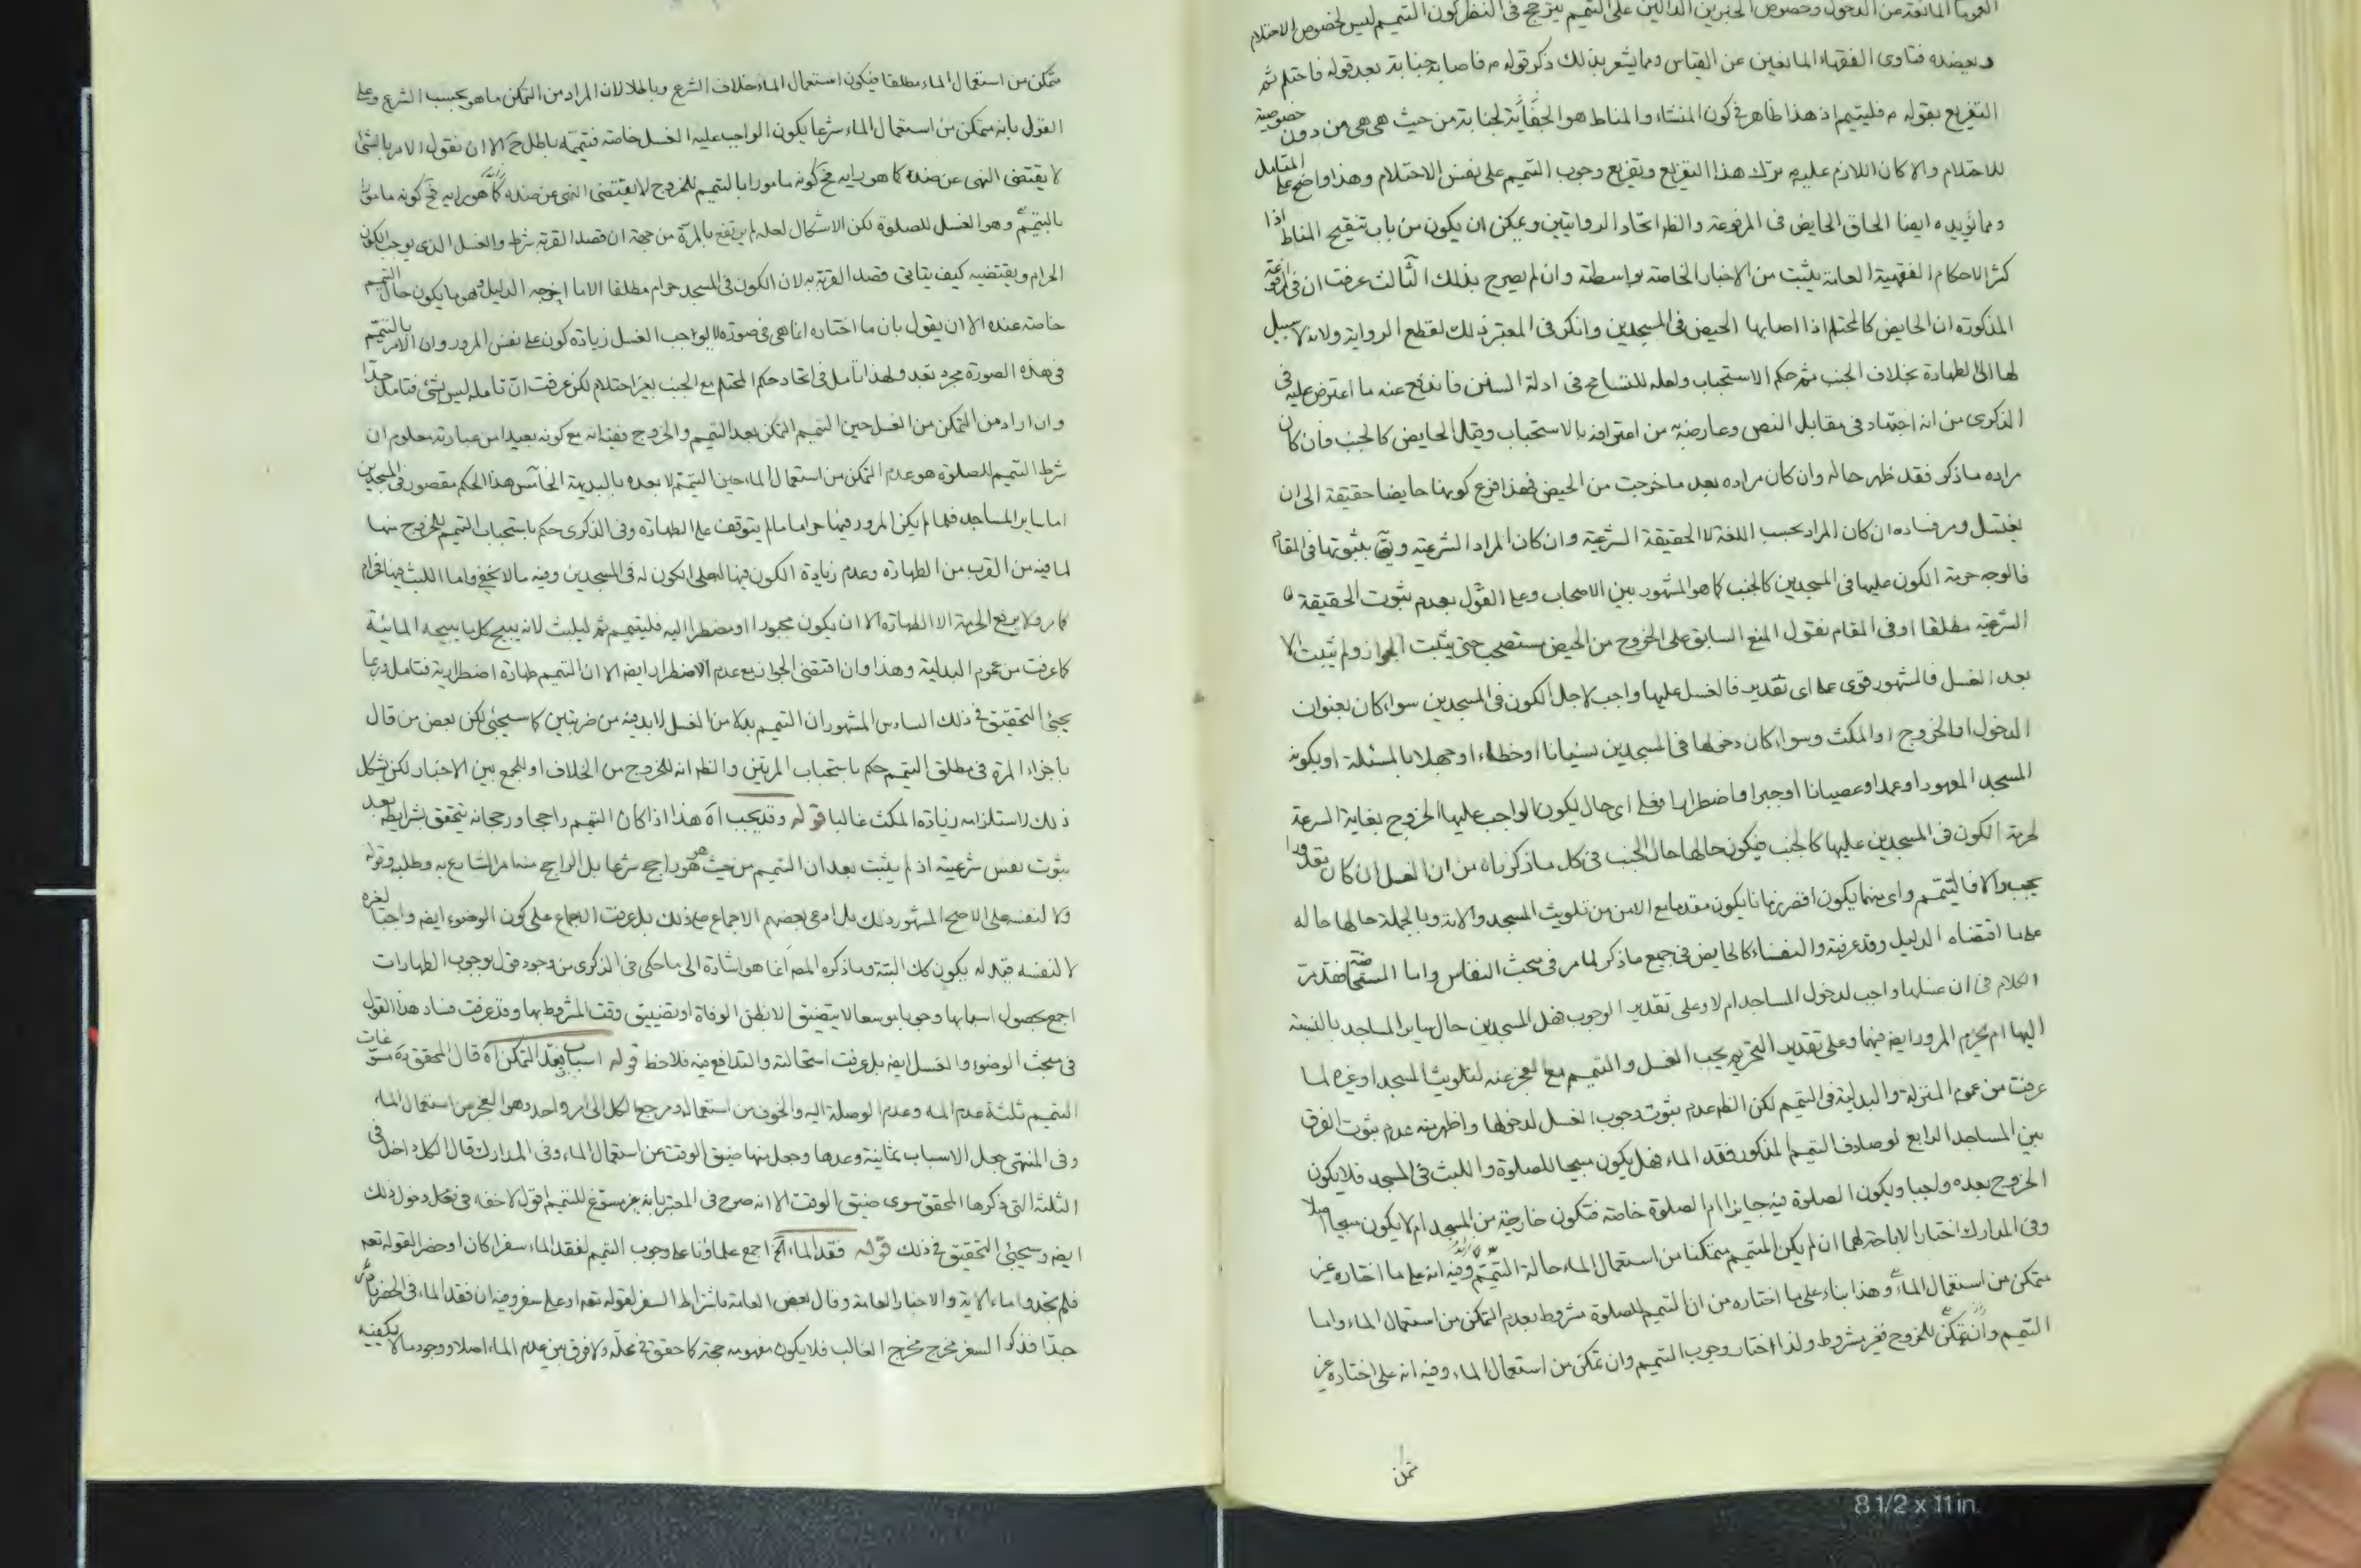 العمومات المانعة من الدخول وخصوص الخبرين الدالين على التيمم يترجح في النظر كون التيمم ليس لخصوص الاحتلام
ويعضده فتاوى الفقهاء المانعين عن القياس ومما يشعر بذلك ذكر قوله م فاصابته جنابة بعد قوله فاحتلم ثم
التفريع بقوله م فليتيمم اذ هذا ظاهر في كون المنشاء والمناط هو الجنابة من حيث هي هي من دون خصوصية
للاحتلام والا كان اللازم عليه ترك هذا التفريع وتفريع وجوب التيمم على نفس الاحتلام وهذا واضح على المتامل
ومما يؤيده ايضا الحاق الحايض في المرفوعة والظ اتحاد الروايتين ويمكن ان يكون من باب تنقيح المناط اذا
كثر الاحكام الفقهية العامة يثبت من الاخبار الخاصة بواسطته وان لم يصرح بذلك الثالث عرفت ان في المرفوعة
المذكورة ان الحايض كالمحتلم اذا اصابها الحيض في المسجدين وانكر في المعتبر ذلك لقطع الرواية ولانه لا سبيل
لها الى الطهارة بخلاف الجنب ثم حكم الاستحباب ولعله للتسامح في ادلة السنن فاندفع عنه ما اعترض عليه في
الذكرى من انه اجتهاد في مقابل النص وعارضه من اعترافه بالاستحباب وقيل الحايض كالجنب فان كان
مراده ما ذكر فقد ظهر حاله وان كان مراده بعد ما خرجت من الحيض فهذا فرع كونها حايضا حقيقة الى ان
يغتسل ومر فساده ان كان المراد بحسب اللغة لا الحقيقة الشرعية وان كان المراد الشرعية بثبوتها في المقام
فالوجه حرمة الكون عليها في المسجدين كالجنب كما هو المشهور بين الاصحاب وعلى القول بعدم ثبوت الحقيقة
الشرعية مطلقا او في المقام نقول المنع السابق على الخروج من الحيض مستصحب حتى يثبت الجواز ولم يثبت الا
بعد الغسل فالمشهور قوى على اى تقدير فالغسل عليها واجب لاجل الكون في المسجدين سواء كان بعنوان
الدخول او الخروج او المكث وسواء كان دخولها في المسجدين نسيانا او خطاء او جهلا بالمسئلة او بكونه
المسجد المعهود او عمدا وعصيانا او جبرا واضطرارا فعلى اى حال يكون الواجب عليها الخروج بغاية السرعة
لحرمة الكون في المسجدين عليها كالجنب فيكون حالها حال الجنب في كل ما ذكرناه من ان الغسل ان كان مقدورا
يجب والا فالتيمم واى منهما يكون اقصر زمانا يكون مقدما مع الامن من تلويث المسجد والا فلا وبالجملة حالها حاله
على ما اقتضاه الدليل وقد عرفته والنفساء كالحايض في جميع ما ذكر لما مر في مبحث النفاس واما المستحاضة فقد مر
الكلام في ان غسلها واجب لدخول المساجد ام لا وعلى تقدير الوجوب فهل المسجدين حال ساير المساجد بالنسبة
اليها ام يحرم المرور ايضا فيهما وعلى تقدير التحريم يجب الغسل والتيمم مع العجز عنه لتلويث المسجد او غيره لما
عرفت من عموم المنزلة والبدلية في التيمم لكن الظ عدم ثبوت وجوب الغسل لدخولها واظهر منه عدم ثبوت الفرق
بين المساجد الرابع لو صادف التيمم المذكور فقد الماء فهل يكون مبيحا للصلوة واللبث في المسجد فلا يكون
الخروج بعده واجبا ويكون الصلوة فيه جايزا ام الصلوة خاصة فتكون خارجة من المسجد ام لا يكون مبيحا اصلا
وفي المدارك اختار الاباحة لهما ان لم يكن المتيمم متمكنا من استعمال الماء حالة التيمم وفيه انه على ما اختاره غير
متمكن من استعمال الماء وهذا بناء على ما اختاره من ان التيمم للصلوة مشروط بعدم التمكن من استعمال الماء واما
التيمم وان تمكن للخروج فغير مشروط ولذا اختار وجوب التيمم وان تمكن من استعمال الماء وفيه انه على اختاره غير
متمكن من استعمال الماء مطلقا فيكون استعمال الماء خلاف الشرع وباطلا لان المراد من التمكن ما هو بحسب الشرع وعلى
القول بانه متمكن من استعمال الماء شرعا يكون الواجب عليه الغسل خاصة فتيممه باطل ح الا ان نقول الامر بالشئ
لا يقتضى النهى عن ضده كما هو رايه فح كونه مامورا بالتيمم للخروج لا يقتضى النهى عن ضده كما هو رايه فح كونه مامورا
بالتيمم وهو الغسل للصلوة لكن الاشكال لعله لم يرتفع بالمرة من جهة ان قصد القربة شرط والغسل الذى يوجب الكون
الحرام ويقتضيه كيف يتاتى قصد القربة به لان الكون في المسجد حرام مطلقا الا ما اخرجه الدليل وهو ما يكون حال التيمم
خاصة عنده الا ان يقول بان ما اختاره انما هى في صورة لا يوجب الغسل زيادة كون على نفس المرور وان الامر بالتيمم
في هذه الصورة مجرد تعبد ولهذا تامل في اتحاد حكم المحتلم مع الجنب بغير احتلام لكن عرفت ان تامله ليس بشئ فتامل جدا
وان اراد من التمكن من الغسل حين التيمم التمكن بعد التيمم والخروج ففيه انه مع كونه بعيدا من عبارته معلوم ان
شرط التيمم للصلوة هو عدم التمكن من استعمال الماء حين التيمم لا بعده بالبديهة الخامس هذا الحكم مقصور في المسجدين
اما ساير المساجد فلما لم يكن المرور فيها حراما ما لم يتوقف على الطهارة وفى الذكرى حكم باستحباب التيمم للخروج منها
لما فيه من القرب من الطهارة وعدم زيادة الكون فيها له على الكون له في المسجدين وفيه ما لا يخفى واما اللبث فيها فحرام
كما مر ولا يرفع الحرمة الا الطهارة الا ان يكون مجبورا او مضطرا اليه فليتيمم ثم ليلبث لانه يبيح كل ما يبيحه المائية
كما عرفت من عموم البدلية وهذا وان اقتضى الجواز مع عدم الاضطرار ايضا الا ان التيمم طهارة اضطرارية فتامل وربما
يجئ التحقيق في ذلك السادس المشهور ان التيمم بدلا من الغسل لا بد فيه من ضربتين كما سيجئ لكن بعض من قال
باجزاء المرة في مطلق التيمم حكم باستحباب المرتين والظ انه للخروج من الخلاف او للجمع بين الاخبار لكن يشكل
ذلك لاستلزامه زيادة المكث غالبا قوله وقد يجب اه هذا اذا كان التيمم راجحا ورجحانه يتحقق بشرايطه بعد
ثبوت نفس شرعيته اذ لم يثبت بعد ان التيمم من حيث هو هو راجح شرعا بل الراجح منه ما امر الشارع به وطلبه وقوله
ولا لنفسه على الاصح المشهور ذلك بل ادعى بعضهم الاجماع على ذلك بل عرفت الاجماع على كون الوضوء ايضا واجبا لغيره
لا لنفسه فبدله يكون كك البتة وما ذكره المصـ انما هو اشارة الى ما حكى في الذكرى من وجود قول بوجوب الطهارات
اجمع بحصول اسبابها وجوبا موسعا لا يتضيق الا بظن الوفاة او تضييق وقت المشروط بها وقد عرفت فساد هذا القول
في مبحث الوضوء والغسل ايضا بل عرفت استحالته والتدافع فيه فلاحظ قوله اسباب فقد التمكن اه قال المحقق ره مسوغات
التيمم ثلثة عدم الماء وعدم الوصلة اليه والخوف من استعماله ومرجع الكل الى امر واحد وهو العجز من استعمال الماء
وفى المنتهى جعل الاسباب ثمانية وعدها وجعل منها ضيق الوقت عن استعمال الماء وفى المدارك قال الكل داخل في
الثلثة التى ذكرها المحقق سوى ضيق الوقت الا انه صرح في المعتبر بانه غير مسوغ للتيمم اقول لا خفاء في دخول ذلك
ايضا وسيجئ التحقيق في ذلك قوله فقد الماء الخ اجمع علماؤنا على وجوب التيمم لفقد الماء سفرا كان او حضرا لقوله تعه
فلم تجدوا ماء الاية والاخبار العامة وقال بعض العامة باشتراط السفر لقوله تعه او على سفر وفيه ان فقد الماء في الحضر نادر
جدا فذكر السفر مخرج مخرج الغالب فلا يكون مفهومه حجة كما حقق في محله ولا فرق بين عدم الماء اصلا ووجود ما لا يكفيه